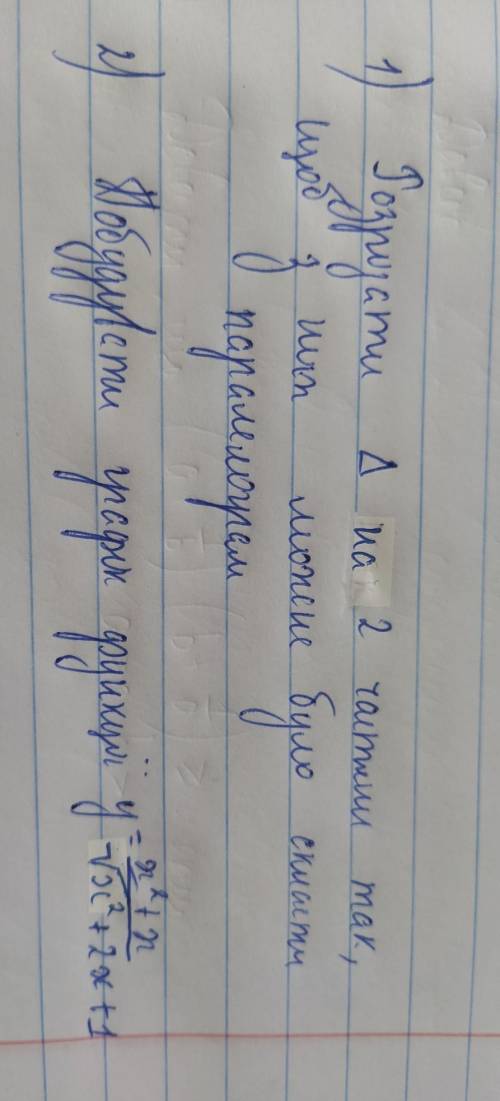 1) Розрізати Δ на 2 частини так,
щоб з них можна було скласти
паралелограм
2) Побудувати графік функції y = \frac{x^2+x}{\sqrt{x^2+2x+1}}